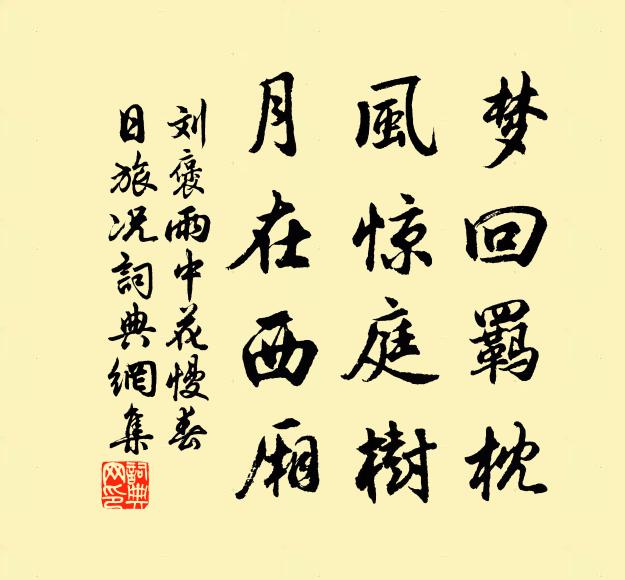 梦回羁枕
風惊庭樹
月在西厢
刘褒雨中花慢春
日旅况詞典網集
詞典網印